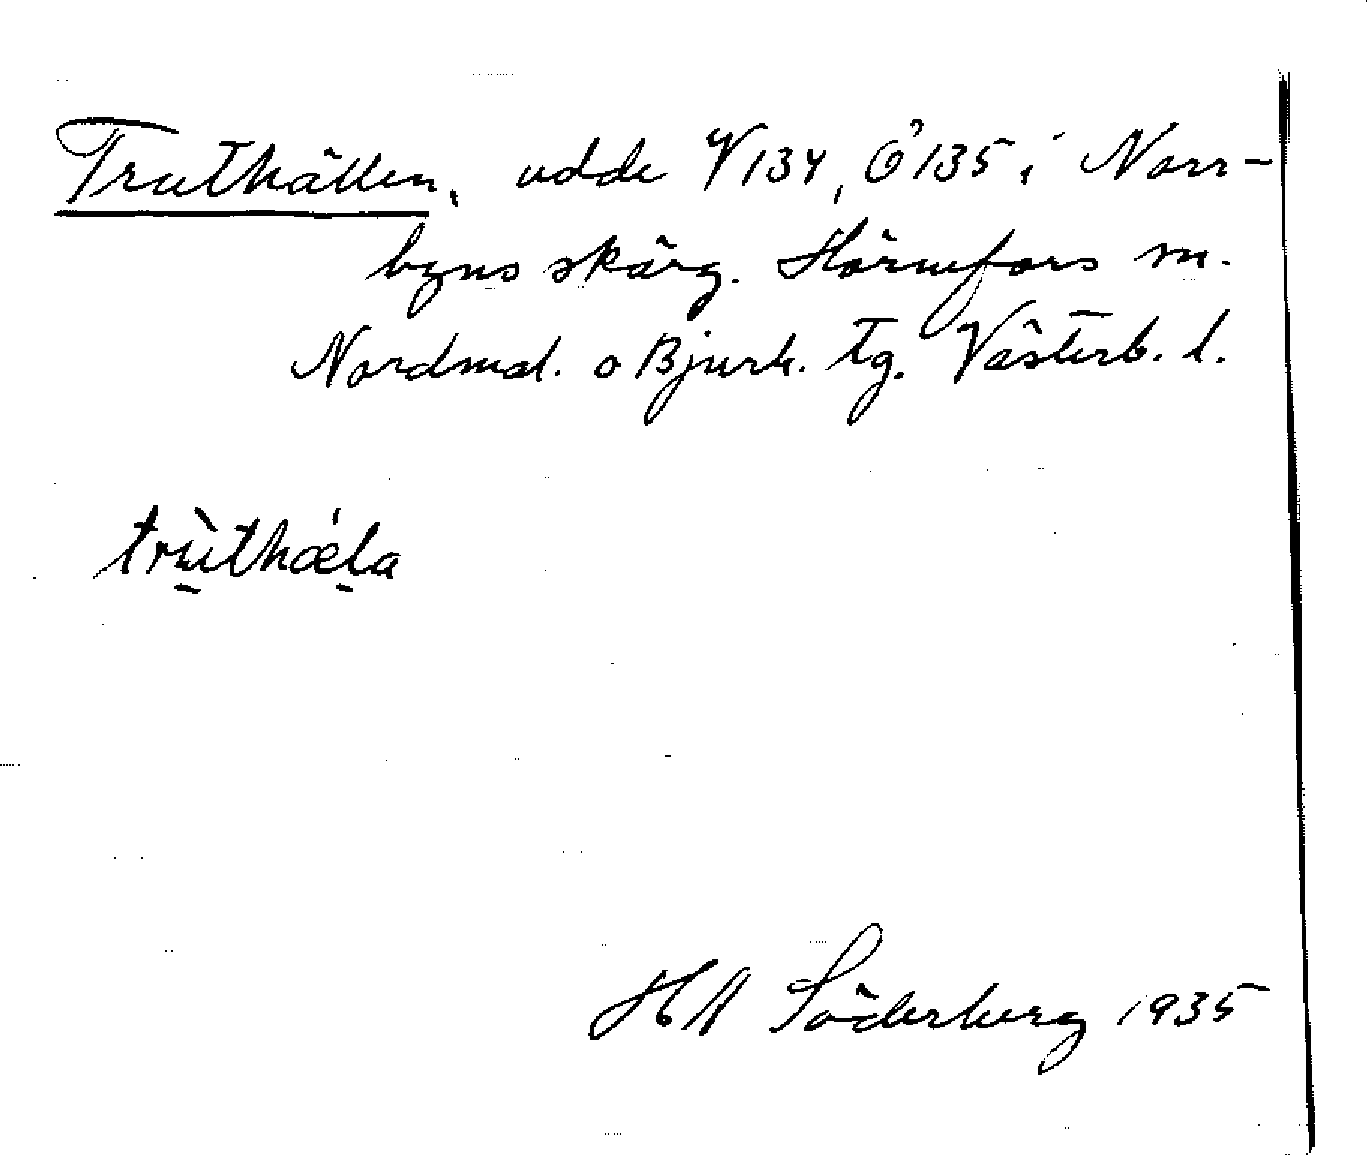 Truthällen, udde V 134, Ö 135 i Norr-
byns skärg. Hörnefors sn.
Nordmal. o Bjurh. tg. Västerb. l.
trùthǽla
H A Söderberg 1935